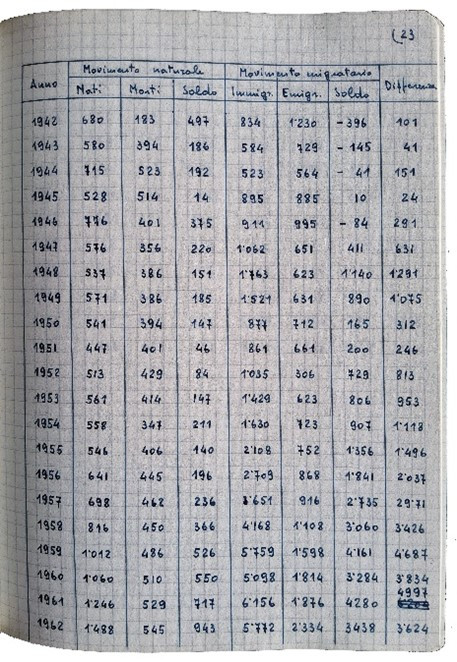 (23
Anno Movimento naturale Movimento migratorio Differenza
Nati Morti Saldo Immigr. Emigr. Saldo
1942 680 183 497 834 1'230 - 396 101
1943 580 394 186 584 729 - 145 41
1944 715 523 192 523 564 - 41 151
1945 528 514 14 895 885 10 24
1946 776 401 375 911 995 - 84 291
1947 576 356 220 1'062 651 411 631
1948 537 386 151 1'763 623 1'140 1'291
1949 571 386 185 1'521 631 890 1'075
1950 541 394 147 877 712 165 312
1951 447 401 46 861 661 200 246
1952 513 429 84 1'035 306 729 813
1953 561 414 147 1'429 623 806 953
1954 558 347 211 1'630 723 907 1'118
1955 546 406 140 2'108 752 1'356 1'496
1956 641 445 196 2'709 868 1'841 2'037
1957 698 462 236 3'651 916 2'735 29'71
1958 816 450 366 4'168 1'108 3'060 3'426
1959 1'012 486 526 5'759 1'598 4'161 4'687
1960 1'060 510 550 5'098 1'814 3'284 3'834
1961 1'246 529 717 6'156 1'876 4280 4997
1962 1'488 545 943 5'772 2'334 3438 3'624